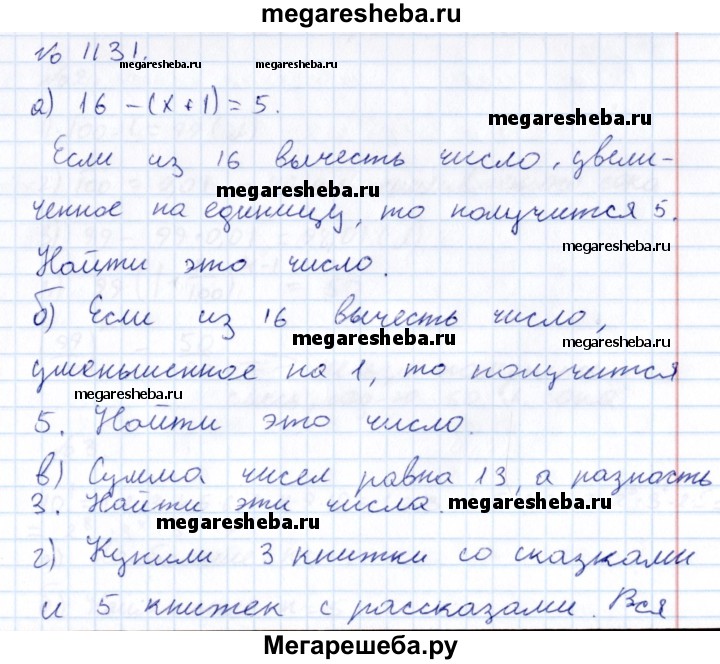 megaresheba.ru
№ 1131.
megaresheba.ru
megaresheba.ru
а) 16 - (x + 1) = 5.
megaresheba.ru
Если из 16 вычесть число, увели-
megaresheba.ru
ченное на единицу, то получится 5.
megaresheba.ru
Найти это число.
б) Если из 16 вычесть число,
megaresheba.ru
megaresheba.ru
уменьшенное на 1, то получится
megaresheba.ru
5. Найти это число.
в) Сумма чисел равна 13, а разность
3. Найти эти числа.
megaresheba.ru
megaresheba.ru
г) Купили 3 книжки со сказками
и 5 книжек с рассказами. Вся
Мегарешеба.ру